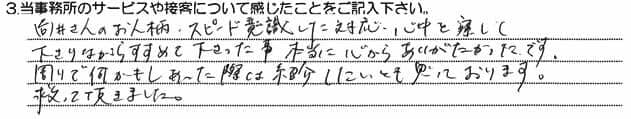 3.当事務所のサービスや接客について感じたことをご記入下さい。
向井さんのお人柄・スピード意識した対応・心中を察して
下さりながらすすめて下さった事 本当に心からありがたかったです。
周りで何かもしあった際は紹介したいとも思っております。
救って頂きました。